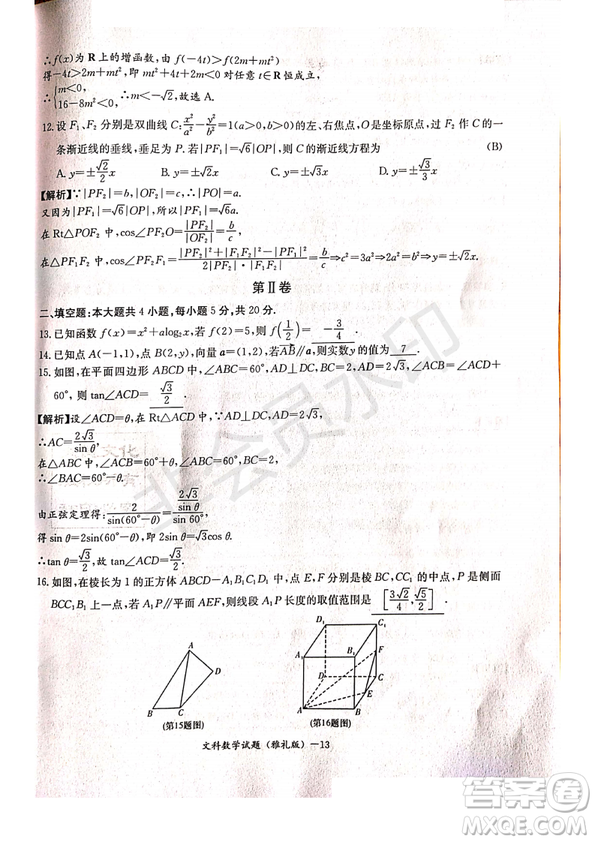 ∴f(x)为 R 上的增函数,由 f(-4t)>f(2m+mt²)
得-4t>2m+mt²,即 mt²+4t+2m<0 对任意 t∈R 恒成立,
∴{m<0, 16-8m²<0, ∴m<-√2,故选 A.
12. 设 F₁、F₂ 分别是双曲线 C:x²/a²-y²/b²=1(a>0,b>0)的左、右焦点,O 是坐标原点,过 F₂ 作 C 的一
条渐近线的垂线,垂足为 P.若|PF₁|=√6|OP|,则 C 的渐近线方程为 (B)
A. y=±√2/2 x B. y=±√2x C. y=±√3x D. y=±√3/3 x
【解析】∵|PF₂|=b,|OF₂|=c,∴|PO|=a.
又因为|PF₁|=√6|OP|,所以|PF₁|=√6a.
在 Rt△POF₂ 中,cos∠PF₂O=|PF₂|/|OF₂|=b/c,
在△PF₁F₂ 中,cos∠PF₂O=(|PF₂|²+|F₁F₂|²-|PF₁|²)/(2|PF₂|·|F₁F₂|)=b/c⇒c²=3a²⇒b=√2a.
第Ⅱ卷
二、填空题:本大题共 4 小题,每小题 5 分,共 20 分.
13. 已知函数 f(x)=x²+alog₂x,若 f(2)=5,则 f(1/2)= -3/4
14. 已知点 A(-1,1),点 B(2,y),向量 a=(1,2),若AB∥a,则实数 y 的值为 7 .
15. 如图,在平面四边形 ABCD 中,∠ABC=60°,AD⊥DC,AB=2,AD=2√3,∠ACB=∠ACD+
60°,则 tan∠ACD=
【解析】设∠ACD=θ,在 Rt△ADC 中,∵AD⊥DC,AD=2√3,
∴AC=2√3/sin θ.
在△ABC 中,∠ACB=60°+θ,∠ABC=60°,
∴∠BAC=60°-θ.
由正弦定理得:2/sin(60°-θ)=(2√3/sin θ)/sin 60°,
得 sin θ=2√3cos θ.
∴tan θ=√3/2,∴tan∠ACD=√3/2.
16. 如图,在棱长为 1 的正方体 ABCD-A₁B₁C₁D₁ 中,点 E、F 分别是棱 BC、CC₁ 的中点,P 是侧面
BCC₁B₁ 内一点,若 A₁P∥平面 AEF,则线段 A₁P 长度的取值范围是 [3√2/4,√5/2]
A D B C
(第15题图)
D₁ C₁ A₁ B₁ F D C E A B
(第16题图)
文科数学试题(雅礼版)—13
非会员水印
答案圈
MXQE.COM